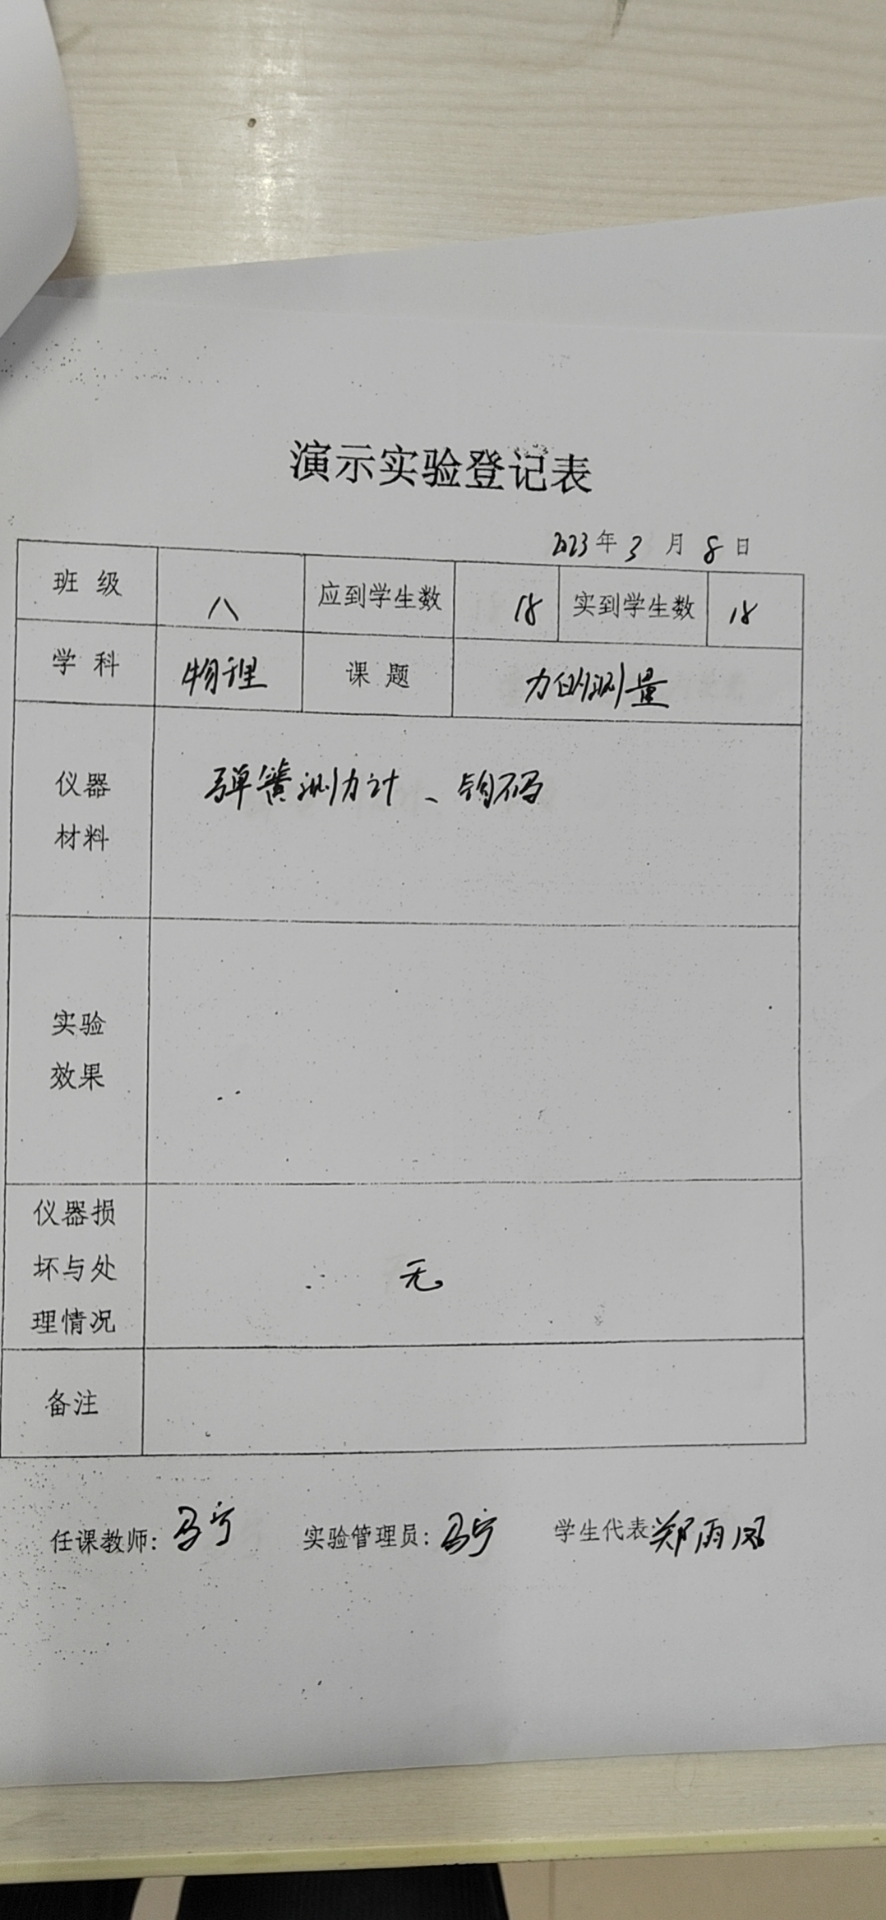 演示实验登记表
2023年3月8日
班级 八 应到学生数 18 实到学生数 18
学科 物理 课题 力的测量
仪器材料 弹簧测力计、钩码
实验效果
仪器损坏与处理情况 无
备注
任课教师：马宁 实验管理员：马宁 学生代表 郑雨凤